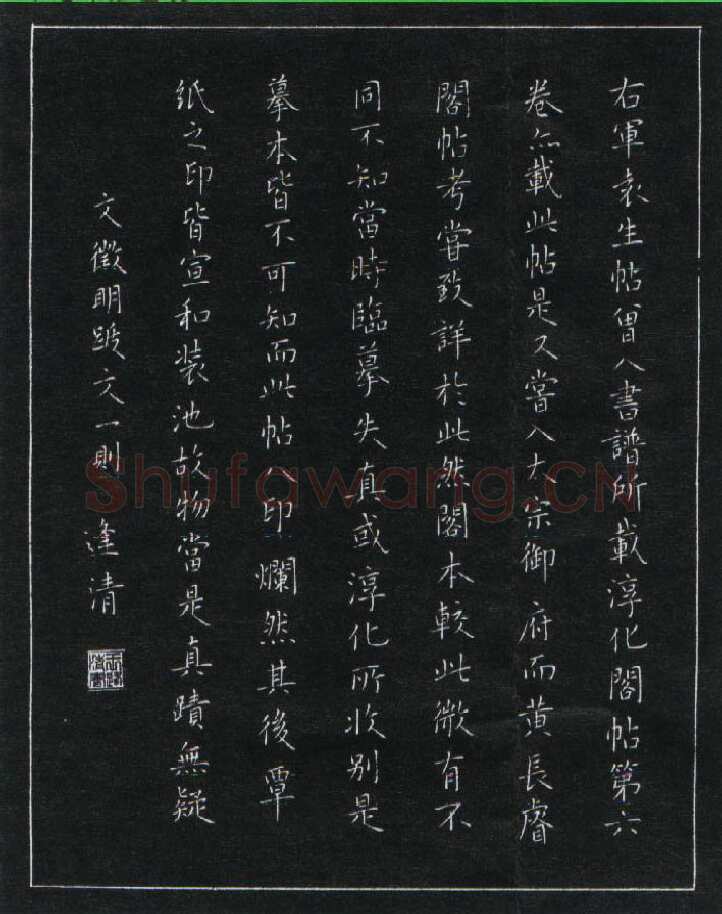 右軍袁生帖曾入書譜所載淳化閣帖第六
卷亦載此帖是又嘗入大宗御府而黃長睿
閣帖考嘗致詳於此然閣本較此微有不
同不知當時臨摹失真或淳化所收别是
摹本皆不可知而此帖八印爛然其後覃
紙之印皆宣和裝池故物當是真蹟無疑
文徵明跋文一則 逢清
Shufawang.CN